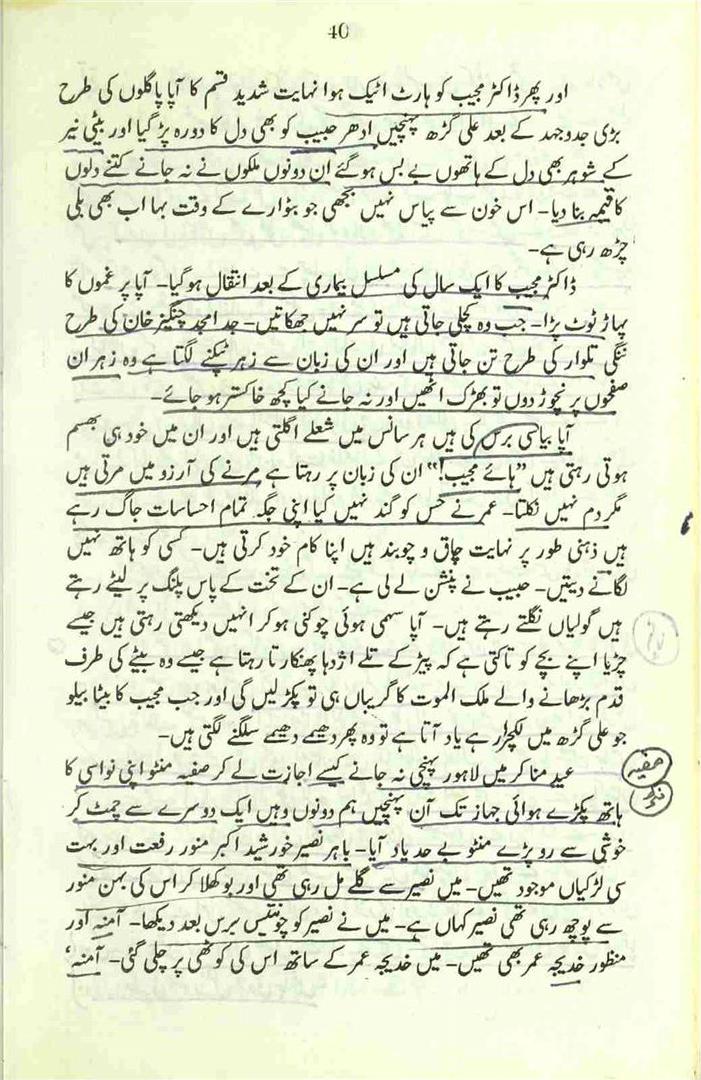 40
اور پھر ڈاکٹر مجیب کو ہارٹ اٹیک ہوا نہایت شدید قسم کا آپا پاگلوں کی طرح
بڑی جدوجہد کے بعد علی گڑھ پہنچیں ادھر حبیب کو بھی دل کا دورہ پڑ گیا اور بیٹی نیر
کے شوہر بھی دل کے ہاتھوں بے بس ہوگئے ان دونوں ملکوں نے نہ جانے کتنے دلوں
کا قیمہ بنا دیا۔ اس خون سے پیاس نہیں بجھی جو بٹوارے کے وقت بہا اب بھی بلی
چڑھ رہی ہے۔
ڈاکٹر مجیب کا ایک سال کی مسلسل بیماری کے بعد انتقال ہوگیا۔ آپا پر غموں کا
پہاڑ ٹوٹ پڑا۔ جب وہ کچلی جاتی ہیں تو سر نہیں جھکاتیں۔ جد امجد چنگیز خان کی طرح
ننگی تلوار کی طرح تن جاتی ہیں اور ان کی زبان سے زہر ٹپکنے لگتا ہے وہ زہر ان
صفحوں پر نچوڑ دوں تو بھڑک اٹھیں اور نہ جانے کیا کچھ خاکستر ہو جائے۔
آپا بیاسی برس کی ہیں ہر سانس میں شعلے اگلتی ہیں اور ان میں خود ہی بھسم
ہوتی رہتی ہیں ”ہائے مجیب!“ ان کی زبان پر رہتا ہے مرنے کی آرزو میں مرتی ہیں
مگر دم نہیں نکلتا۔ عمر نے حس کو گند نہیں کیا اپنی جگہ تمام احساسات جاگ رہے
ہیں ذہنی طور پر نہایت چاق و چوبند ہیں اپنا کام خود کرتی ہیں۔ کسی کو ہاتھ نہیں
لگانے دیتیں۔ حبیب نے پنشن لے لی ہے۔ ان کے تخت کے پاس پلنگ پر لیٹے رہتے
ہیں گولیاں نگلتے رہتے ہیں۔ آپا سہمی ہوئی چوکنی ہوکر انہیں دیکھتی رہتی ہیں جیسے
چڑیا اپنے بچے کو تاکتی ہے کہ پیڑ کے تلے اژدہا پھنکارتا رہتا ہے جیسے وہ بیٹے کی طرف
قدم بڑھانے والے ملک الموت کا گریباں ہی تو پکڑ لیں گی اور جب مجیب کا بیٹا ببلو
جو علی گڑھ میں لکچرار ہے یاد آتا ہے تو وہ پھر دھیمے دھیمے سلگنے لگتی ہیں۔
عید منا کر میں لاہور پہنچی نہ جانے کیسے اجازت لے کر صفیہ منٹو اپنی نواسی کا
صفیہ
ہاتھ پکڑے ہوائی جہاز تک آن پہنچیں ہم دونوں وہیں ایک دوسرے سے چمٹ کر
خوشی سے رو پڑے منٹو بے حد یاد آیا۔ باہر نصیر خورشید اکبر منور رفعت اور بہت
سی لڑکیاں موجود تھیں۔ میں نصیر سے گلے مل رہی تھی اور بوکھلا کر اس کی بہن منور
سے پوچھ رہی تھی نصیر کہاں ہے۔ میں نے نصیر کو چونتیس برس بعد دیکھا۔ آمنہ اور
منظور خدیجہ عمر بھی تھیں۔ میں خدیجہ عمر کے ساتھ اس کی کوٹھی پر چلی گئی۔ آمنہ،